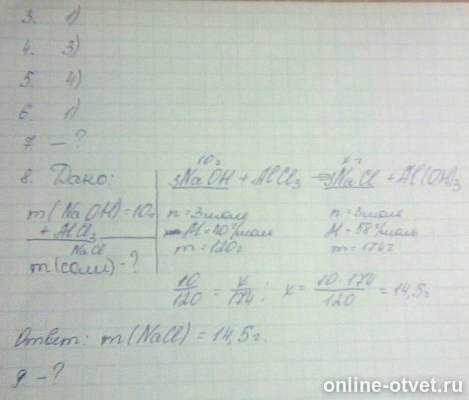 3. 1)
4. 3)
5. 4)
6. 1)
7 – ?
8. Дано:
m(NaOH)=10г
+ AlCl3
NaCl
m(соли) – ?
10г x г
3NaOH + AlCl3 => 3NaCl + Al(OH)3
n = 3моль n = 3моль
M = 40г/моль M = 58г/моль
m = 120г m = 174г
10/120 = x/174; x = 10·174/120 = 14,5г
Ответ: m(NaCl) = 14,5г.
9 – ?
online-otvet.ru